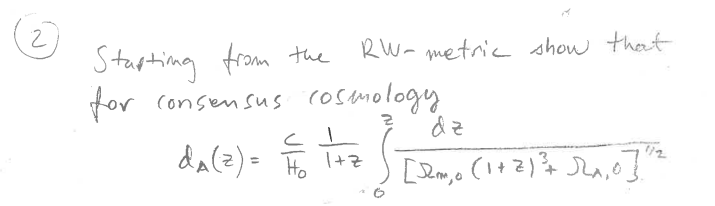 2
Starting from the RW-metric show that
for consensus cosmology
d_A(z) = c/H_0 1/(1+z) ∫_0^z dz/[Ω_m,0 (1+z)^3 + Ω_Λ,0]^1/2